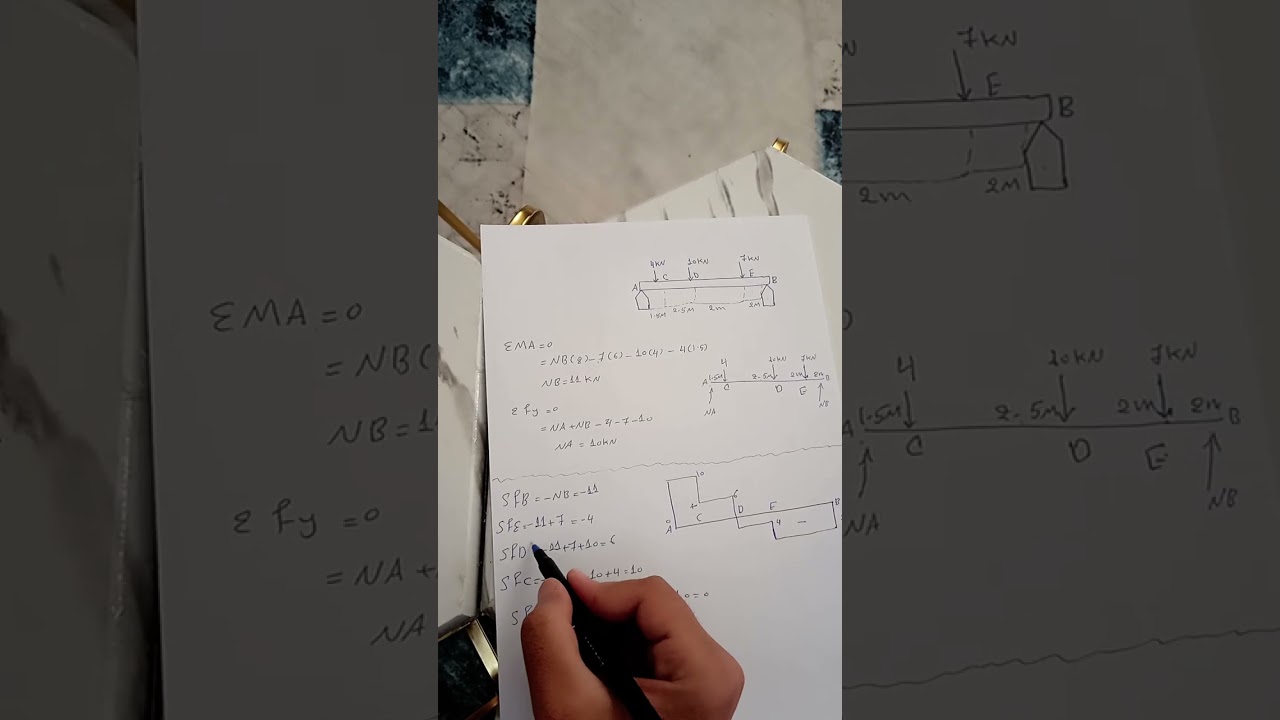 4KN 10KN 7KN
A C D E B
1.5M 2.5M 2m 2M
ƐMA=0
= NB(8)-7(6)-10(4)-4(1.5)
NB=11 KN
4 10KN 7KN
A 1.5M 2.5M 2m 2m B
C D E
NA NB
Ɛfy=0
= NA+NB-4-7-10
NA = 10KN
SfB = -NB = -11
SfE = -11+7 = -4
SfD = -11+7+10=6
SfC= 10+4=10
Sf =0
10
6
+ D E B
0 C
A 4 -
7KN
E
B
2m 2M
ƐMA=0
= NB(
NB=1
10KN 7KN
4
1.5M 2.5M 2m 2m B
C D E
NA NB
Ɛfy =0
= NA+
NA